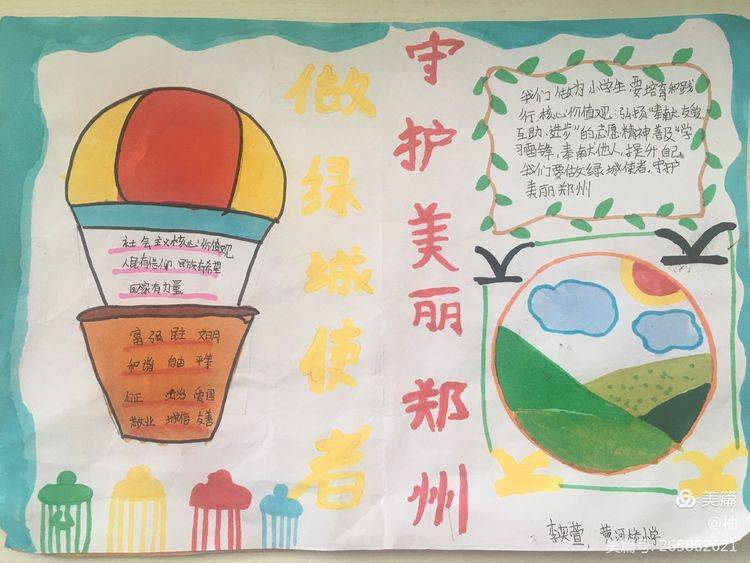 做绿城使者
守护美丽郑州
社会主义核心价值观
人民有信仰 民族有希望
国家有力量
富强 民主 文明
和谐 自由 平等
公正 法治 爱国
敬业 诚信 友善
我们做为小学生要培育和践
行核心价值观:弘扬"奉献、友爱
互助、进步"的志愿精神普及"学
习雷锋,奉献他人,提升自己。
我们要做好绿城使者,守护
美丽郑州
黄河桥小学
美篇
@柚
美篇号:265862621